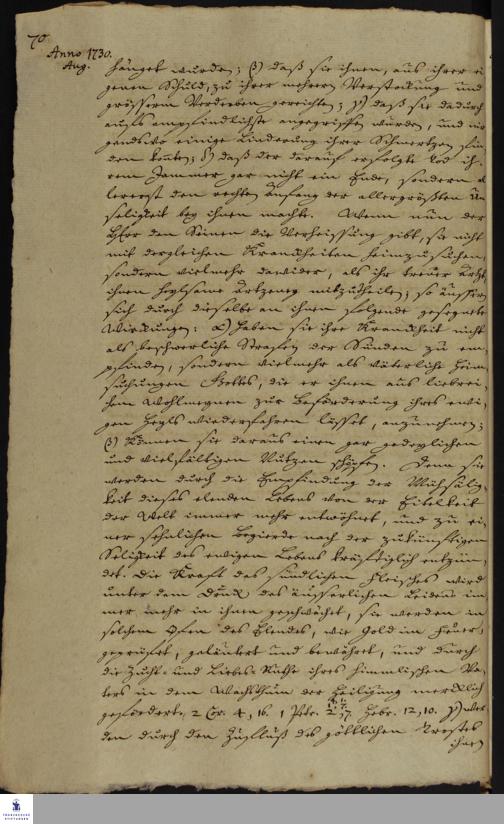 70
Anno 1730.
Aug.
hänget wurden; β) daß sie ihnen, aus ihrer ei-
genen Schuld, zu ihrer mehrern Verstockung und
grösserm Verderben gereichten; γ) daß sie dadurch
aufs empfindlichste angegriffen wurden, und nir-
gendswo einige Linderung ihrer Schmertzen fin-
den konten; δ) daß der darauf erfolgte Tod ih-
rem Jammer gar nicht ein Ende, sondern al-
lererst den rechten Anfang der allergrößten Un-
seligkeit bey ihnen machte. Wenn nun der
HErr den Seinen die Verheissung gibt, sie nicht
mit dergleichen Kranckheiten heimzusuchen,
sondern vielmehr dawider, als ihr treuer Artzt,
ihnen heylsame Artzeney mitzutheilen; so äussern
sich durch dieselbe an ihnen folgende gesegnete
Wirckungen: α) haben sie ihre Kranckheit nicht
als beschwerliche Strafen der Sünden zu em-
pfinden, sondern vielmehr als väterliche Heim-
suchungen Gottes, die er ihnen aus liebrei-
chem Wohlmeynen zur Beförderung ihres ewi-
gen Heyls wiederfahren lässet, anzunehmen;
β) Können sie daraus einen gar gedeylichen
und vielfältigen Nutzen schöpfen. Denn sie
werden durch die Empfindung der Mühselig-
keit dieses elenden Lebens von der Eitelkeit
der Welt immer mehr entwöhnet, und zu ei-
ner sehnlichen Begierde nach der zukünftigen
Seligkeit des ewigen Lebens kräftiglich entzün-
det. Die Kraft des sündlichen Fleisches wird
unter dem Druck des äusserlichen Leidens im-
mer mehr in ihnen geschwächet, sie werden in
solchem Ofen des Elendes, wie Gold im Feuer,
geprüfet, geläutert und bewähret, und durch
die Zucht- und Liebes-Ruthe ihres himmlischen Va-
ters in dem Wachsthum der Heiligung mercklich
gefördert, 2 Cor. 4, 16. 1 Petr. Hebr. 12, 10. γ) wer-
den durch den Zufluß des göttlichen Trostes
ihnen
FRANCKESCHE STIFTUNGEN